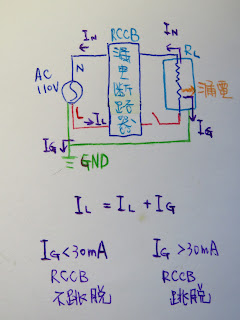 I_N RCCB I_N R_L
N
AC
110V
漏電断路器
漏電
L I_L
I_G I_G
GND
I_L = I_L + I_G
I_G < 30mA I_G > 30mA
RCCB RCCB
不跳脱 跳脱